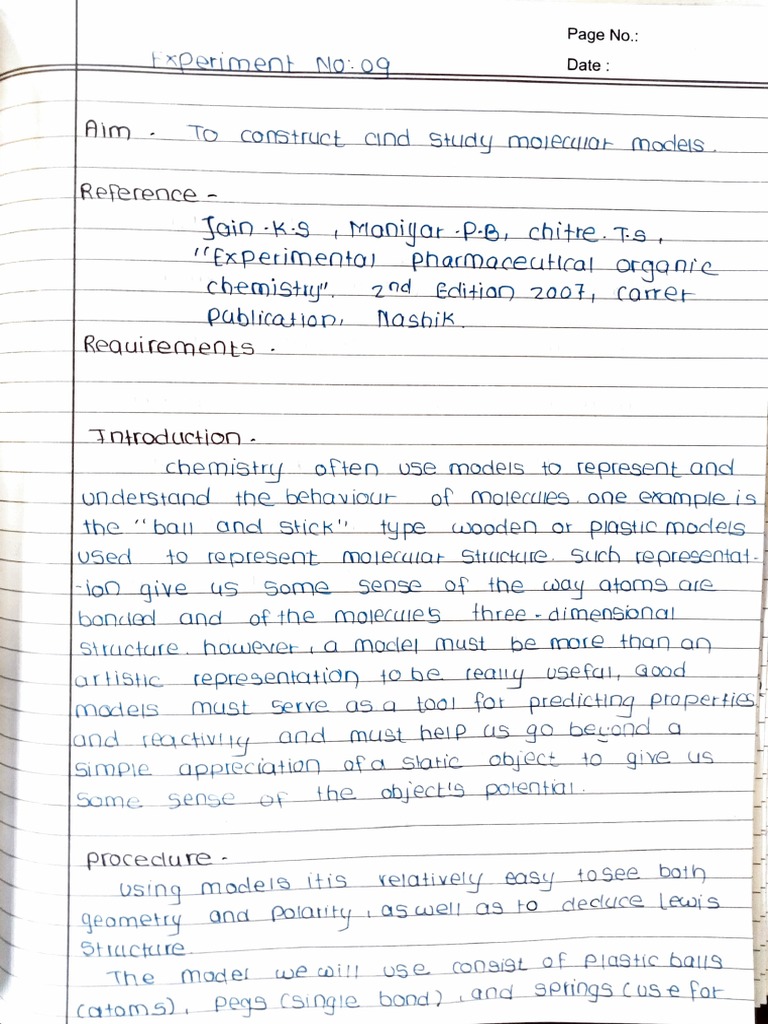 Page No.:
Experiment No: 09
Date :
Aim - To construct and study molecular models.
Reference -
Jain .K.S , Maniyar .P.B, chitre. T.S ,
"Experimental pharmaceutical organic
chemistry". 2nd Edition 2007, carrer
publication, Nashik.
Requirements -
Introduction -
chemistry often use models to represent and
understand the behaviour of molecules. one example is
the "ball and stick" type wooden or plastic models
used to represent molecular structure. Such representat-
-ion give us some sense of the way atoms are
bonded and of the molecule's three-dimensional
structure. however, a model must be more than an
artistic representation to be really useful, Good
models must serve as a tool for predicting properties
and reactivity and must help us go beyond a
simple appreciation of a static object to give us
some sense of the object's potential.
procedure -
using models it is relatively easy to see both
geometry and polarity, as well as to deduce lewis
structure.
The model we will use consist of plastic balls
(atoms), pegs (single bond), and springs (use for